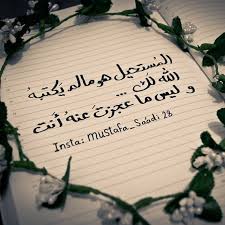 المستحيل هو مالم يكتبه
الله لك ...
و ليس ما عجزت عنه أنت
Insta: Mustafa_Saadi 28